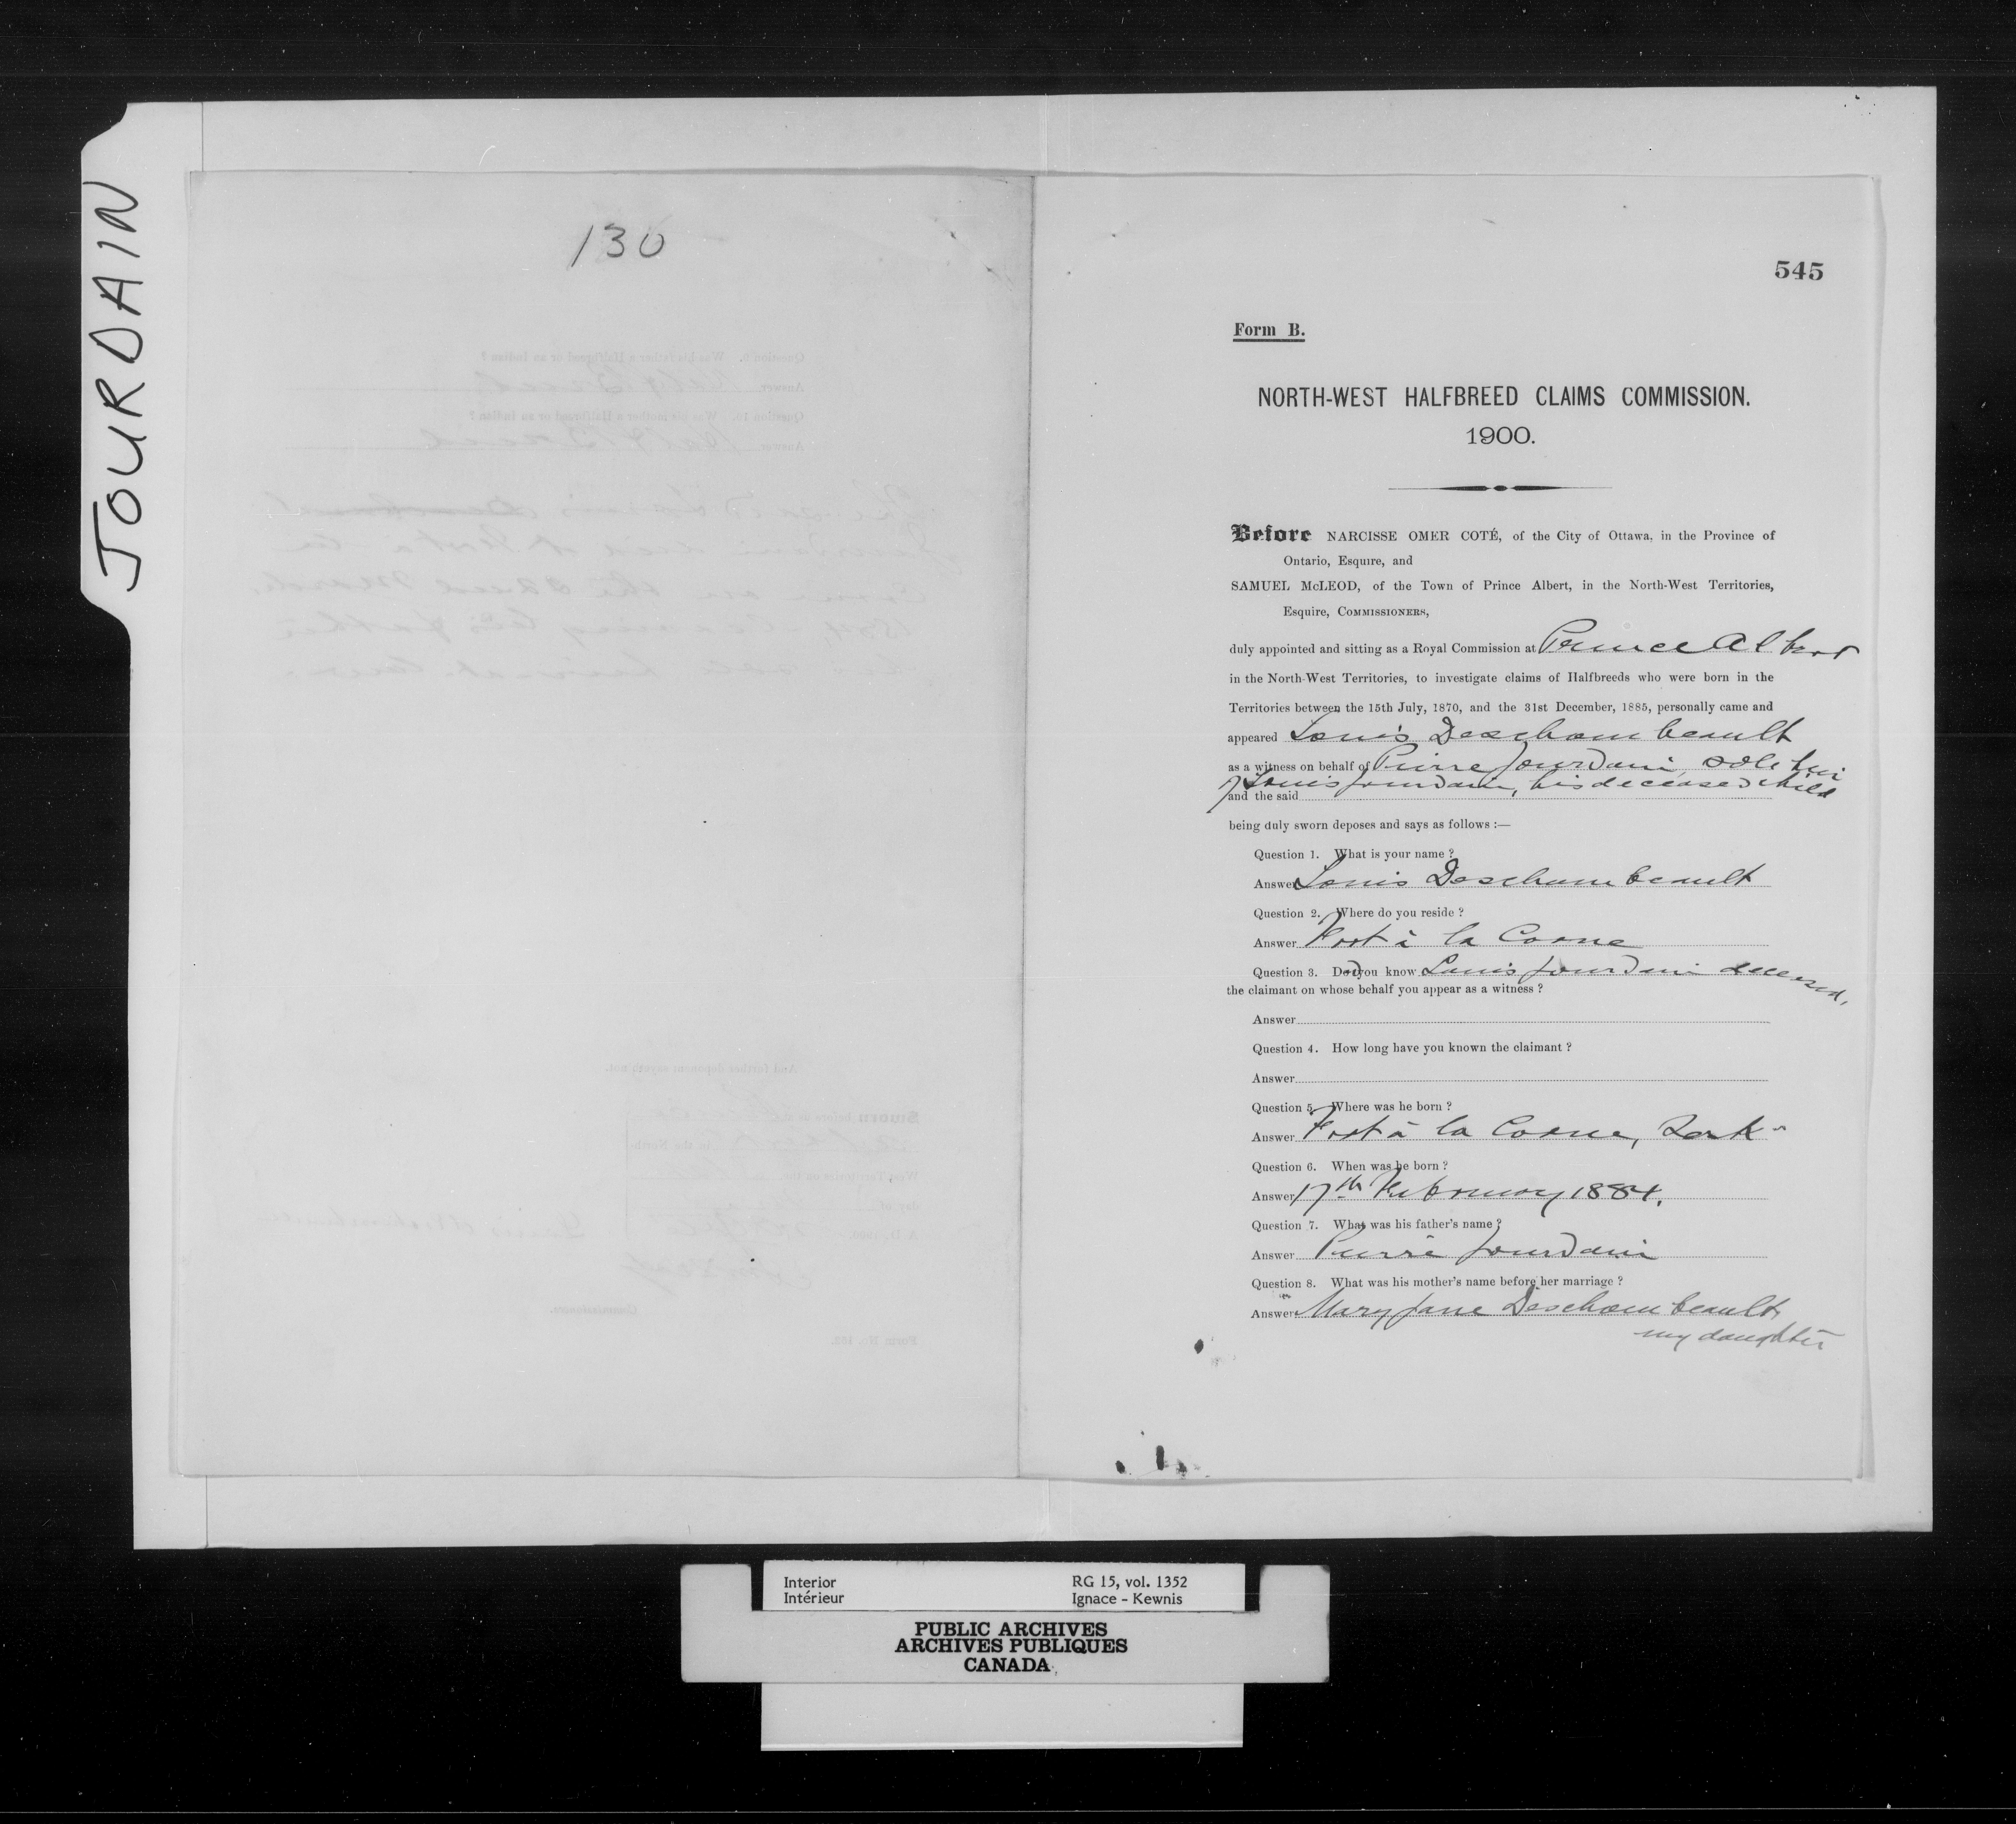 JOURDAIN
130
545
Form B.
NORTH-WEST HALFBREED CLAIMS COMMISSION.
1900.
Before NARCISSE OMER COTÉ, of the City of Ottawa, in the Province of
Ontario, Esquire, and
SAMUEL McLEOD, of the Town of Prince Albert, in the North-West Territories,
Esquire, COMMISSIONERS,
duly appointed and sitting as a Royal Commission at Prince Albert
in the North-West Territories, to investigate claims of Halfbreeds who were born in the
Territories between the 15th July, 1870, and the 31st December, 1885, personally came and
appeared Louis Deschambeault
as a witness on behalf of Pierre Jourdain, sole heir
of Louis Jourdain, his deceased child
and the said
being duly sworn deposes and says as follows :—
Question 1. What is your name ?
Answer Louis Deschambeault
Question 2. Where do you reside ?
Answer Fort à la Corne
Question 3. Did you know Louis Jourdain deceased,
the claimant on whose behalf you appear as a witness ?
Answer
Question 4. How long have you known the claimant ?
Answer
Question 5. Where was he born ?
Answer Fort à la Corne, Sask
Question 6. When was he born ?
Answer 17th February 1884.
Question 7. What was his father's name ?
Answer Pierre Jourdain
Question 8. What was his mother's name before her marriage ?
Answer Mary Jane Deschambeault,
my daughter
Interior
Intérieur
RG 15, vol. 1352
Ignace - Kewnis
PUBLIC ARCHIVES
ARCHIVES PUBLIQUES
CANADA